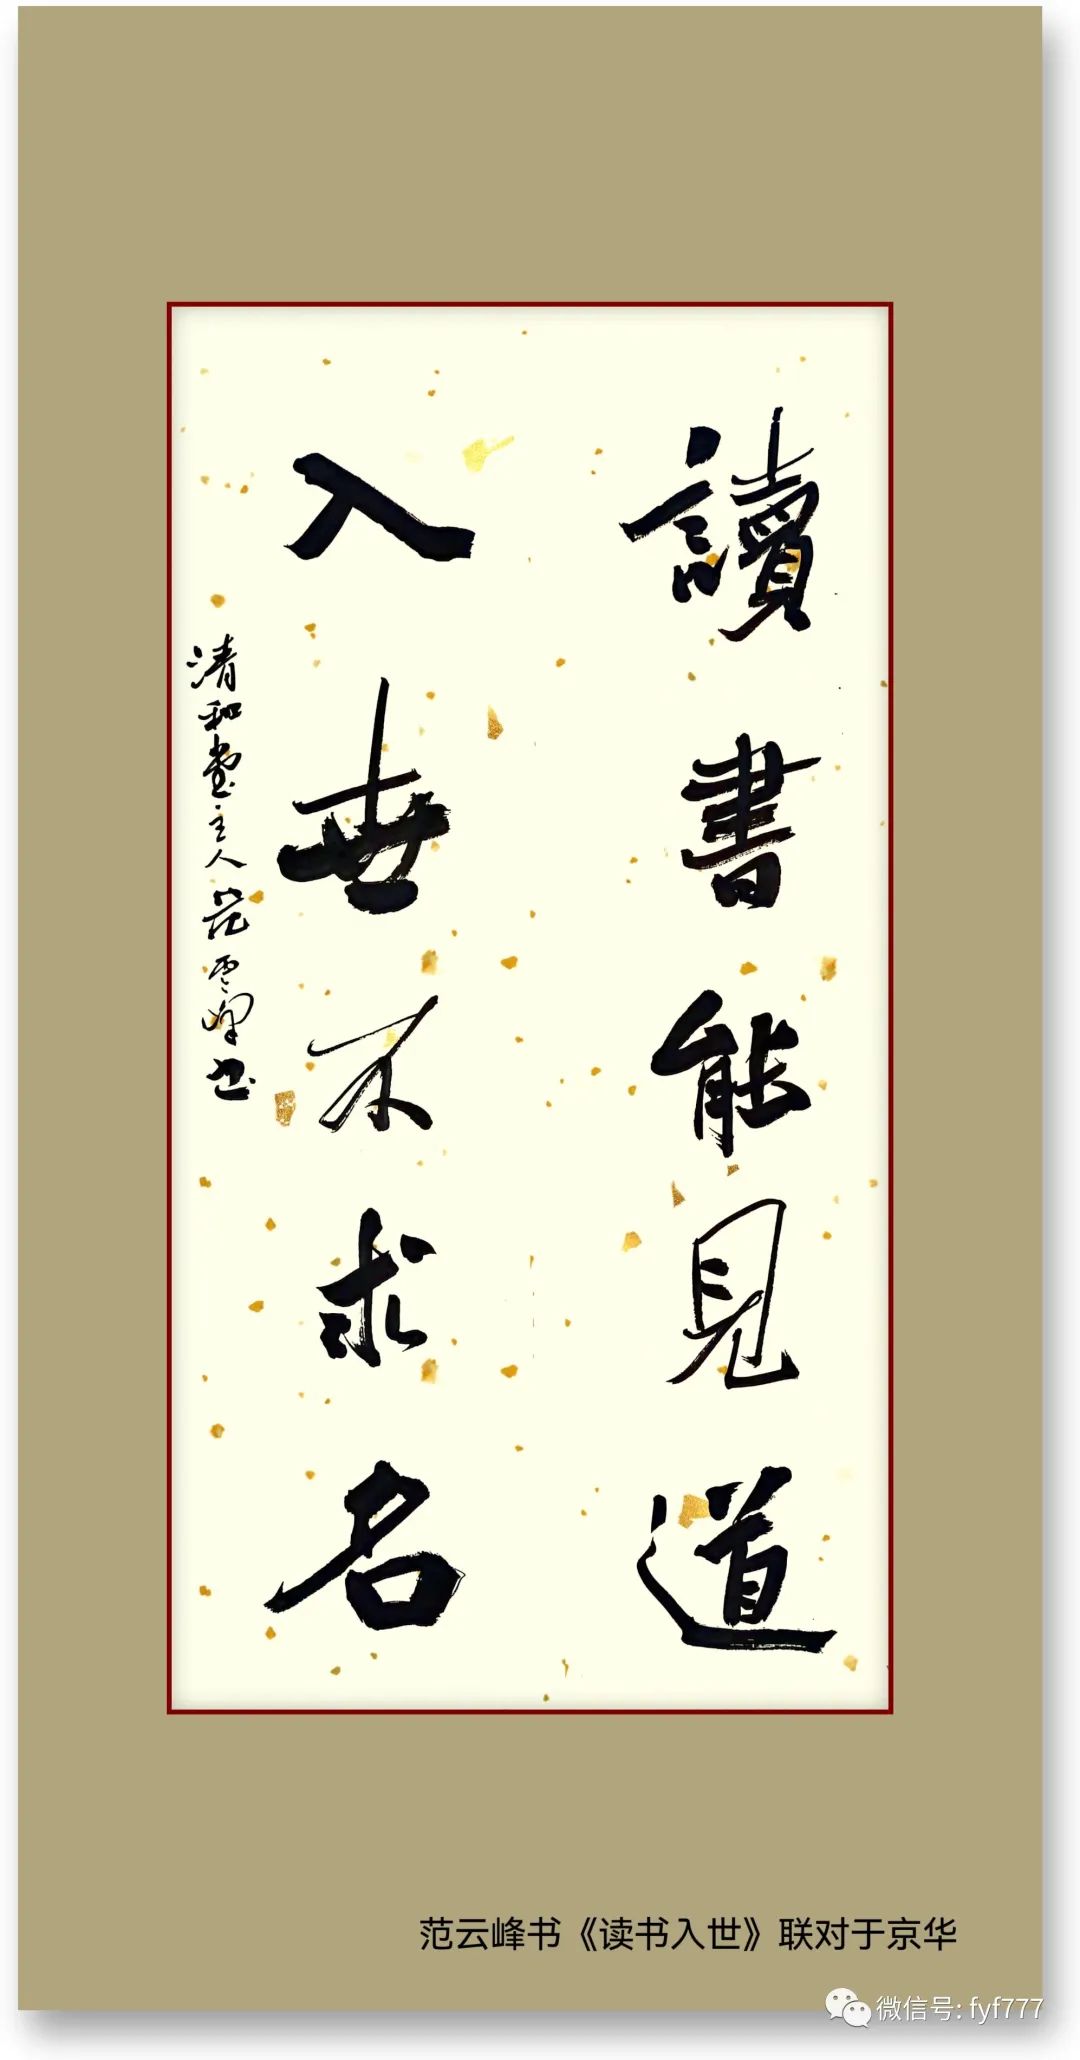 讀書能見道
入世不求名
清和堂主人范雲峰书
范云峰书《读书入世》联对于京华
微信号: fyf777